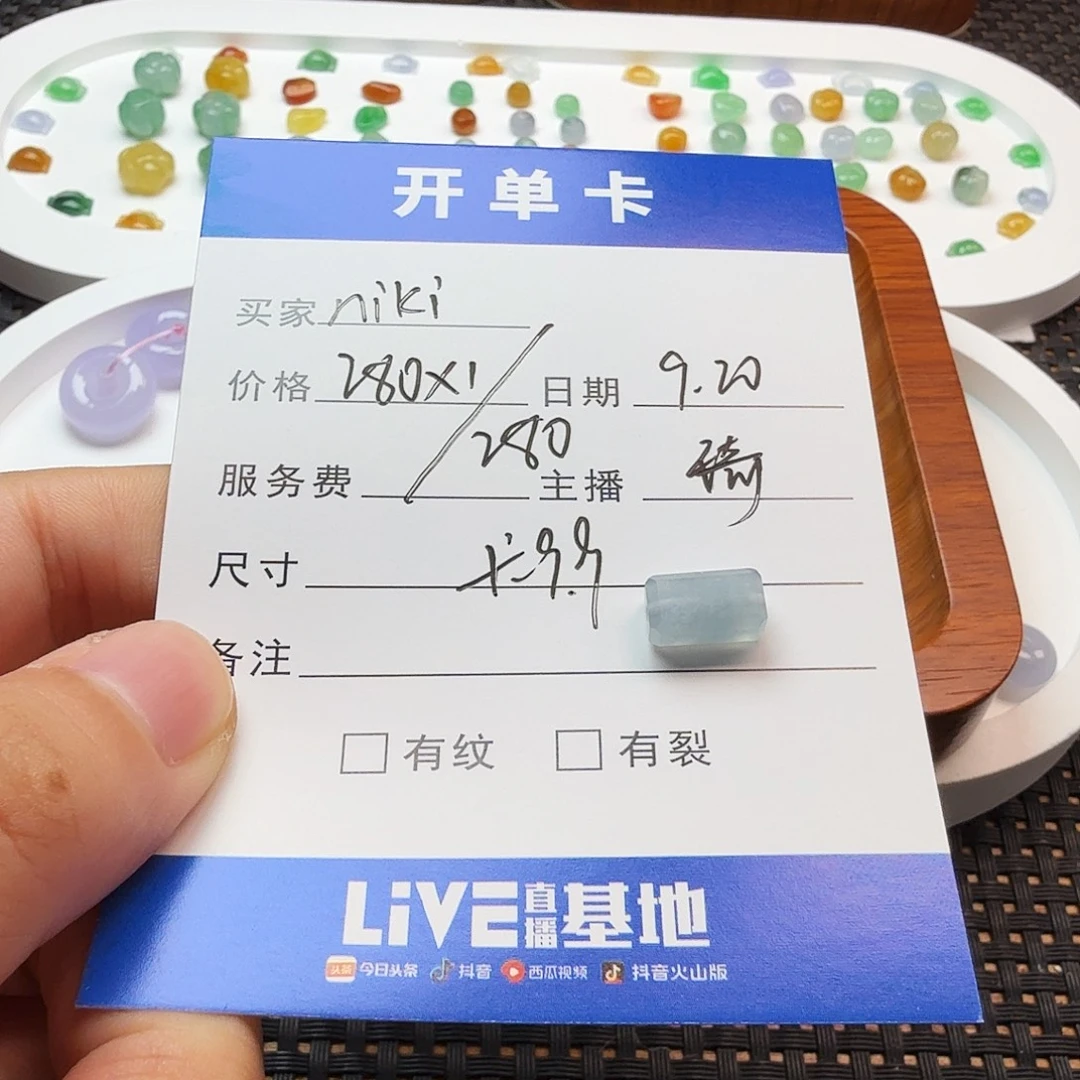 开单卡
买家 niki
价格 280×1 日期 9.20
280
服务费 主播 琦
尺寸
备注
有纹 有裂
LiVE直播基地
头条 今日头条 抖音 西瓜视频 抖音火山版